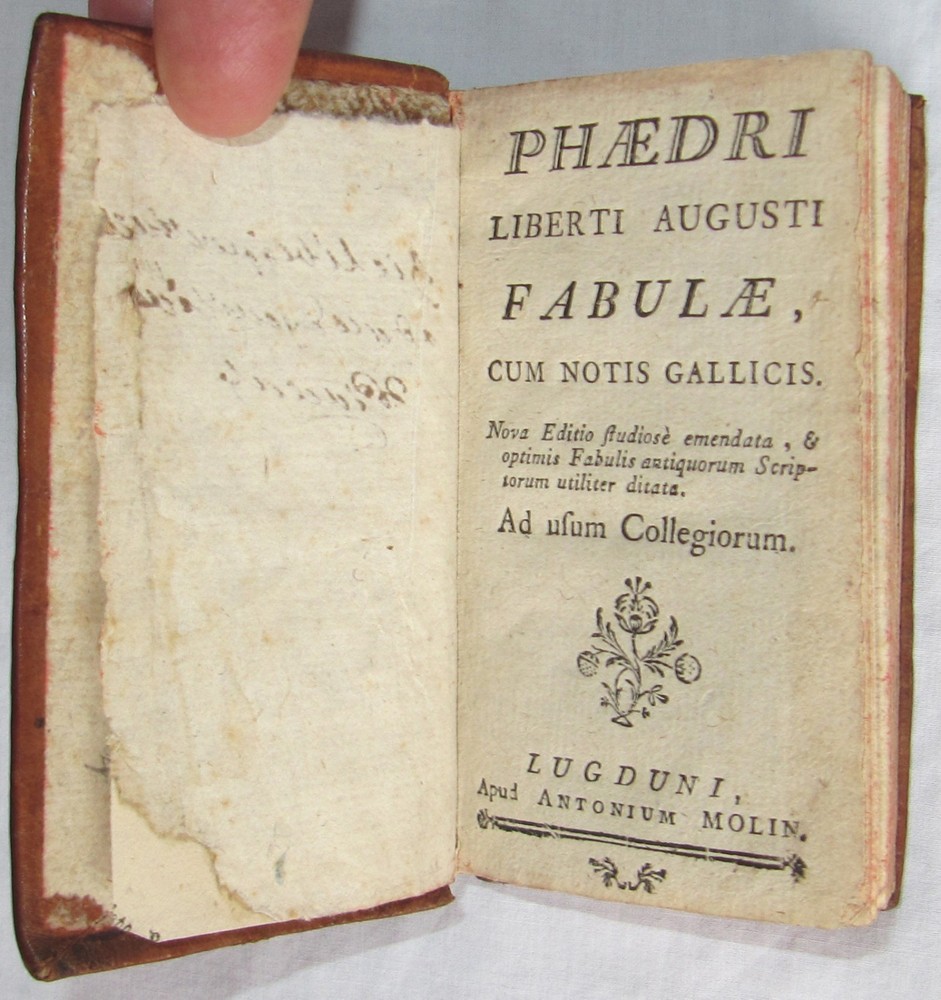 PHÆDRI
LIBERTI AUGUSTI
FABULÆ,
CUM NOTIS GALLICIS.
Nova Editio ſtudiosè emendata, &
optimis Fabulis antiquorum Scrip-
torum utiliter ditata.
Ad uſum Collegiorum.
LUGDUNI,
Apud ANTONIUM MOLIN.